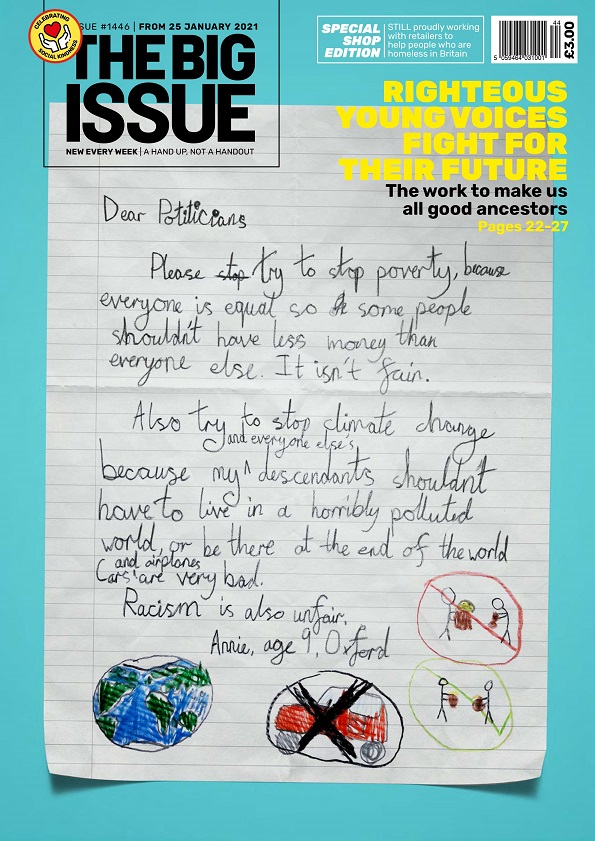 CELEBRATING
SOCIAL KINDNESS
SSUE #1446 | FROM 25 JANUARY 2021
THE BIG
ISSUE
NEW EVERY WEEK | A HAND UP, NOT A HANDOUT
SPECIAL
SHOP
EDITION
STILL proudly working
with retailers to
help people who are
homeless in Britain
44
5 059464 031001
£3.00
RIGHTEOUS
YOUNG VOICES
FIGHT FOR
THEIR FUTURE
The work to make us
all good ancestors
Pages 22-27
Dear Politicians
Please stop try to stop poverty, because
everyone is equal so some people
shouldn't have less money than
everyone else. It isn't fair.
Also try to stop climate change
and everyone else's
because my ^ descendants shouldn't
have to live in a horribly polluted
world, or be there at the end of the world
and airplanes
Cars ^ are very bad.
Racism is also unfair.
Annie, age 9, Oxford